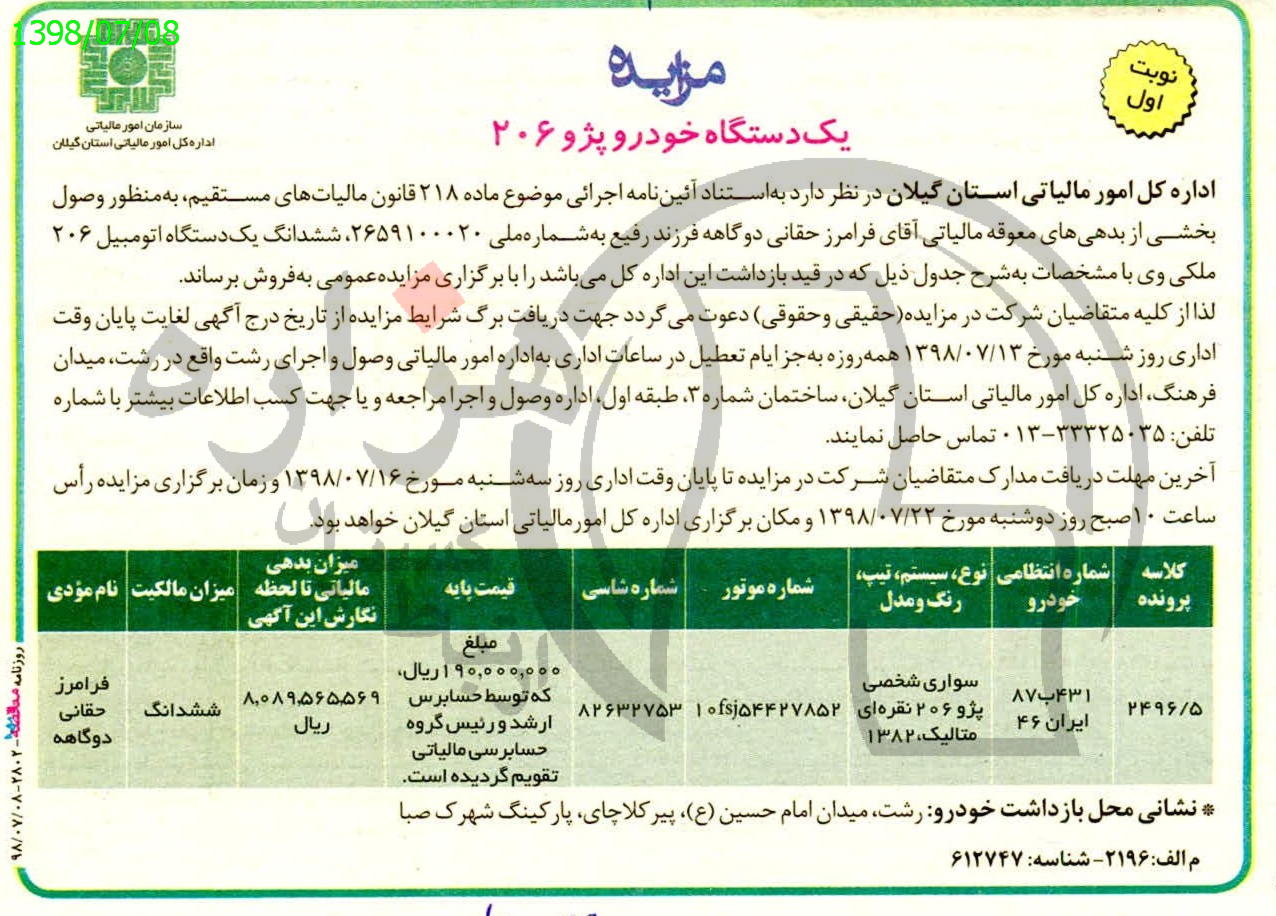 1398/07/08
سازمان امور مالیاتی
اداره کل امور مالیاتی استان گیلان
مزایده
نوبت
اول
یک دستگاه خودرو پژو ۲۰۶
اداره کل امور مالیاتی استان گیلان در نظر دارد به‌استناد آئین‌نامه اجرائی موضوع ماده ۲۱۸ قانون مالیات‌های مستقیم، به‌منظور وصول
بخشی از بدهی‌های معوقه مالیاتی آقای فرامرز حقانی دوگاهه فرزند رفیع به‌شماره‌ملی ۲۶۵۹۱۰۰۰۲۰، ششدانگ یک‌دستگاه اتومبیل ۲۰۶
ملکی وی با مشخصات به‌شرح جدول ذیل که در قید بازداشت این اداره کل می‌باشد را با برگزاری مزایده‌عمومی به‌فروش برساند.
لذا از کلیه متقاضیان شرکت در مزایده(حقیقی وحقوقی) دعوت می‌گردد جهت دریافت برگ شرایط مزایده از تاریخ درج آگهی لغایت پایان وقت
اداری روز شنبه مورخ ۱۳۹۸/۰۷/۱۳ همه‌روزه به‌جز ایام تعطیل در ساعات اداری به‌اداره امور مالیاتی وصول و اجرای رشت واقع در رشت، میدان
فرهنگ، اداره کل امور مالیاتی استان گیلان، ساختمان شماره۳، طبقه اول، اداره وصول و اجرا مراجعه و یا جهت کسب اطلاعات بیشتر با شماره
تلفن: ۳۳۳۲۵۰۳۵-۰۱۳ تماس حاصل نمایند.
آخرین مهلت دریافت مدارک متقاضیان شرکت در مزایده تا پایان وقت اداری روز سه‌شنبه مورخ ۱۳۹۸/۰۷/۱۶ و زمان برگزاری مزایده رأس
ساعت ۱۰صبح روز دوشنبه مورخ ۱۳۹۸/۰۷/۲۲ و مکان برگزاری اداره کل امورمالیاتی استان گیلان خواهد بود.
کلاسه پرونده
شماره انتظامی خودرو
نوع، سیستم، تیپ، رنگ و مدل
شماره موتور
شماره شاسی
قیمت پایه
میزان بدهی مالیاتی تا لحظه نگارش این آگهی
میزان مالکیت
نام مؤدی
۲۴۹۶/۵
۴۳۱ب۸۷
ایران ۴۶
سواری شخصی
پژو ۲۰۶ نقره‌ای
متالیک، ۱۳۸۲
۱۰fsj۵۴۴۲۷۸۵۲
۸۲۶۳۲۷۵۳
مبلغ
۱۹۰,۰۰۰,۰۰۰ ریال،
که توسط حسابرس
ارشد و رئیس گروه
حسابرسی مالیاتی
تقویم گردیده است.
۸,۰۸۹,۵۶۵,۵۶۹
ریال
ششدانگ
فرامرز
حقانی
دوگاهه
* نشانی محل بازداشت خودرو: رشت، میدان امام حسین (ع)، پیرکلاچای، پارکینگ شهرک صبا
م الف:۲۱۹۶- شناسه: ۶۱۲۷۴۷
روزنامه مناقصه - ۲۸۰۲ - ۹۸/۰۷/۰۸
هزاره